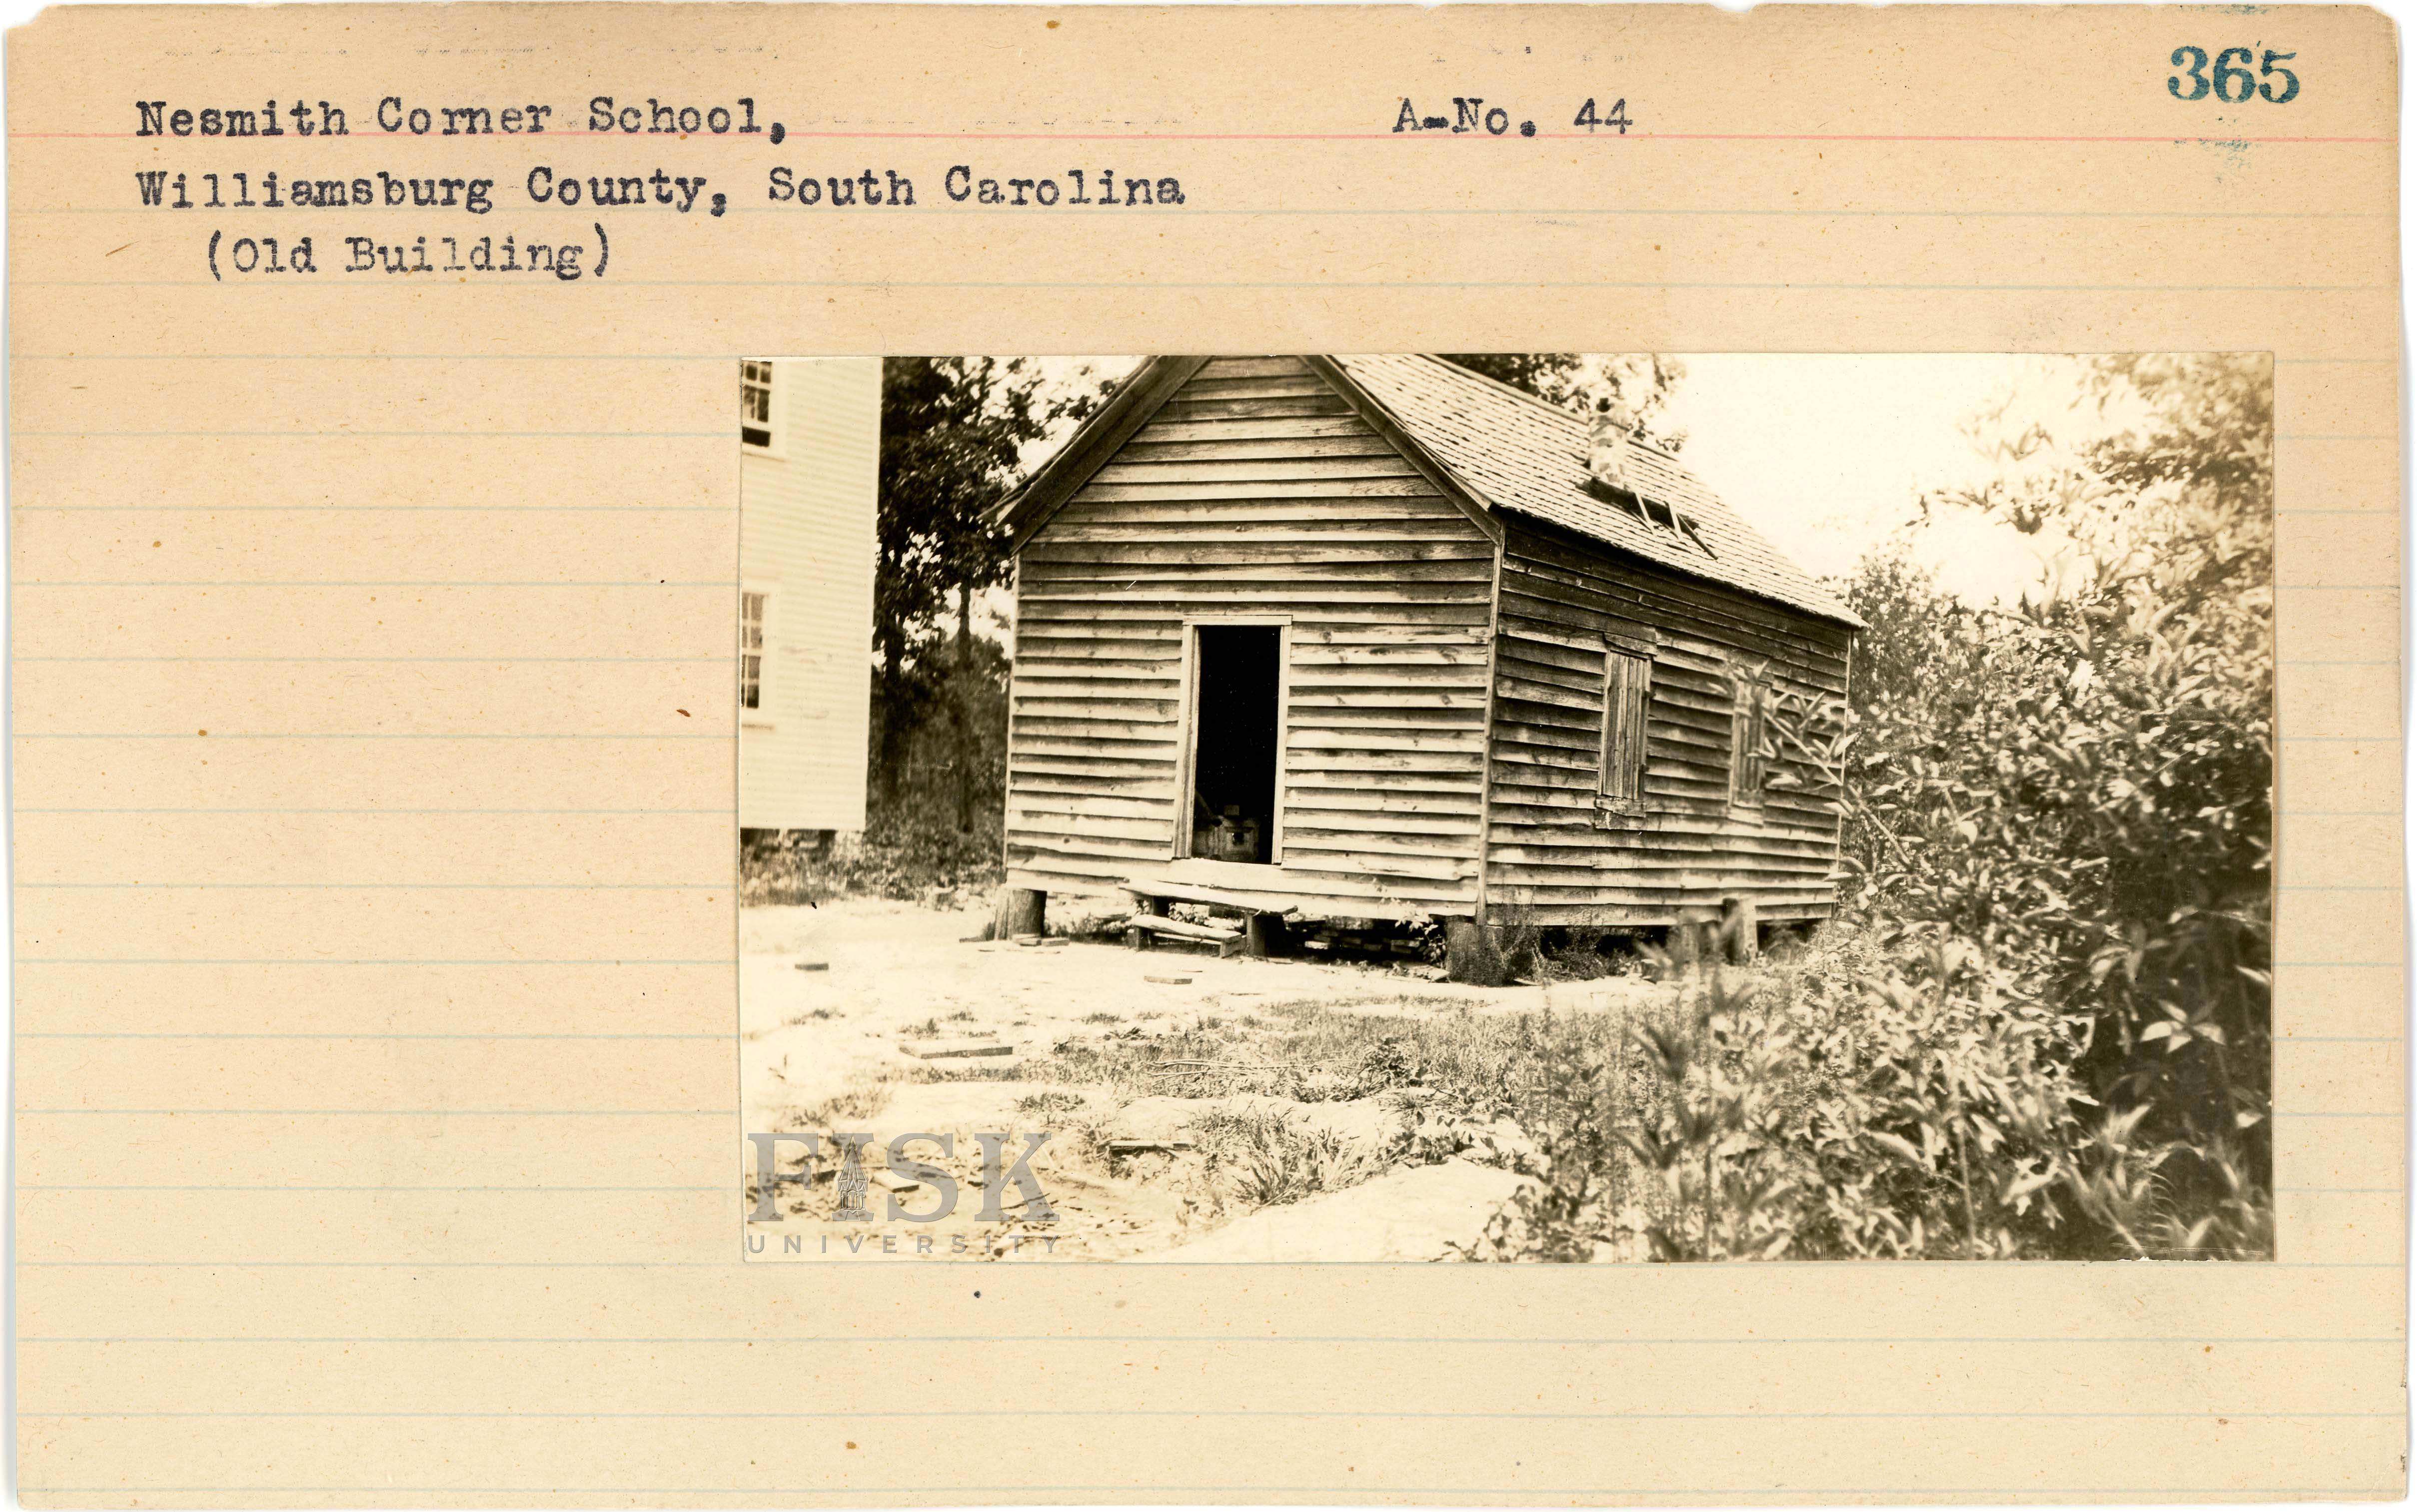 365
Nesmith Corner School, A-No. 44
Williamsburg County, South Carolina
(Old Building)
FISK
UNIVERSITY